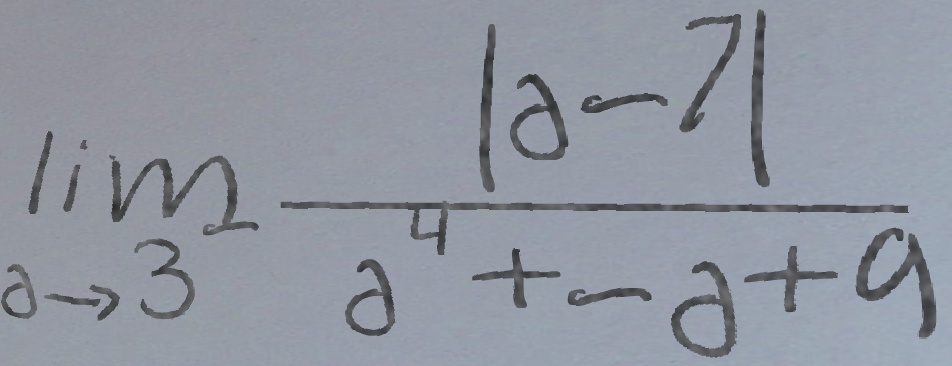 \lim_{a \to 3} \frac{|a-7|}{a^4+-a+9}